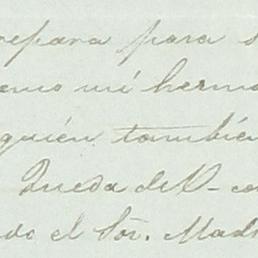 repara para s
emo mi herma
quién también
Queda de V- co
do el Sor. Madr